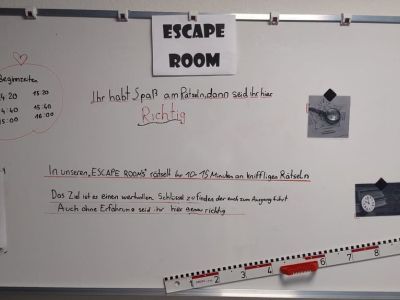 ESCAPE
ROOM
Beginnzeiten
15:20
15:40
16:00
Ihr habt Spaß am Rätseln, dann seid ihr hier
Richtig
In unseren „ESCAPE ROOMS" rätselt ihr 10-15 Minuten an kniffligen Rätseln
Das Ziel ist es einen wertvollen Schlüssel zu finden der euch zum Ausgang führt
Auch ohne Erfahrung seid ihr hier genau richtig
1 2 3 4 5 6 7 8